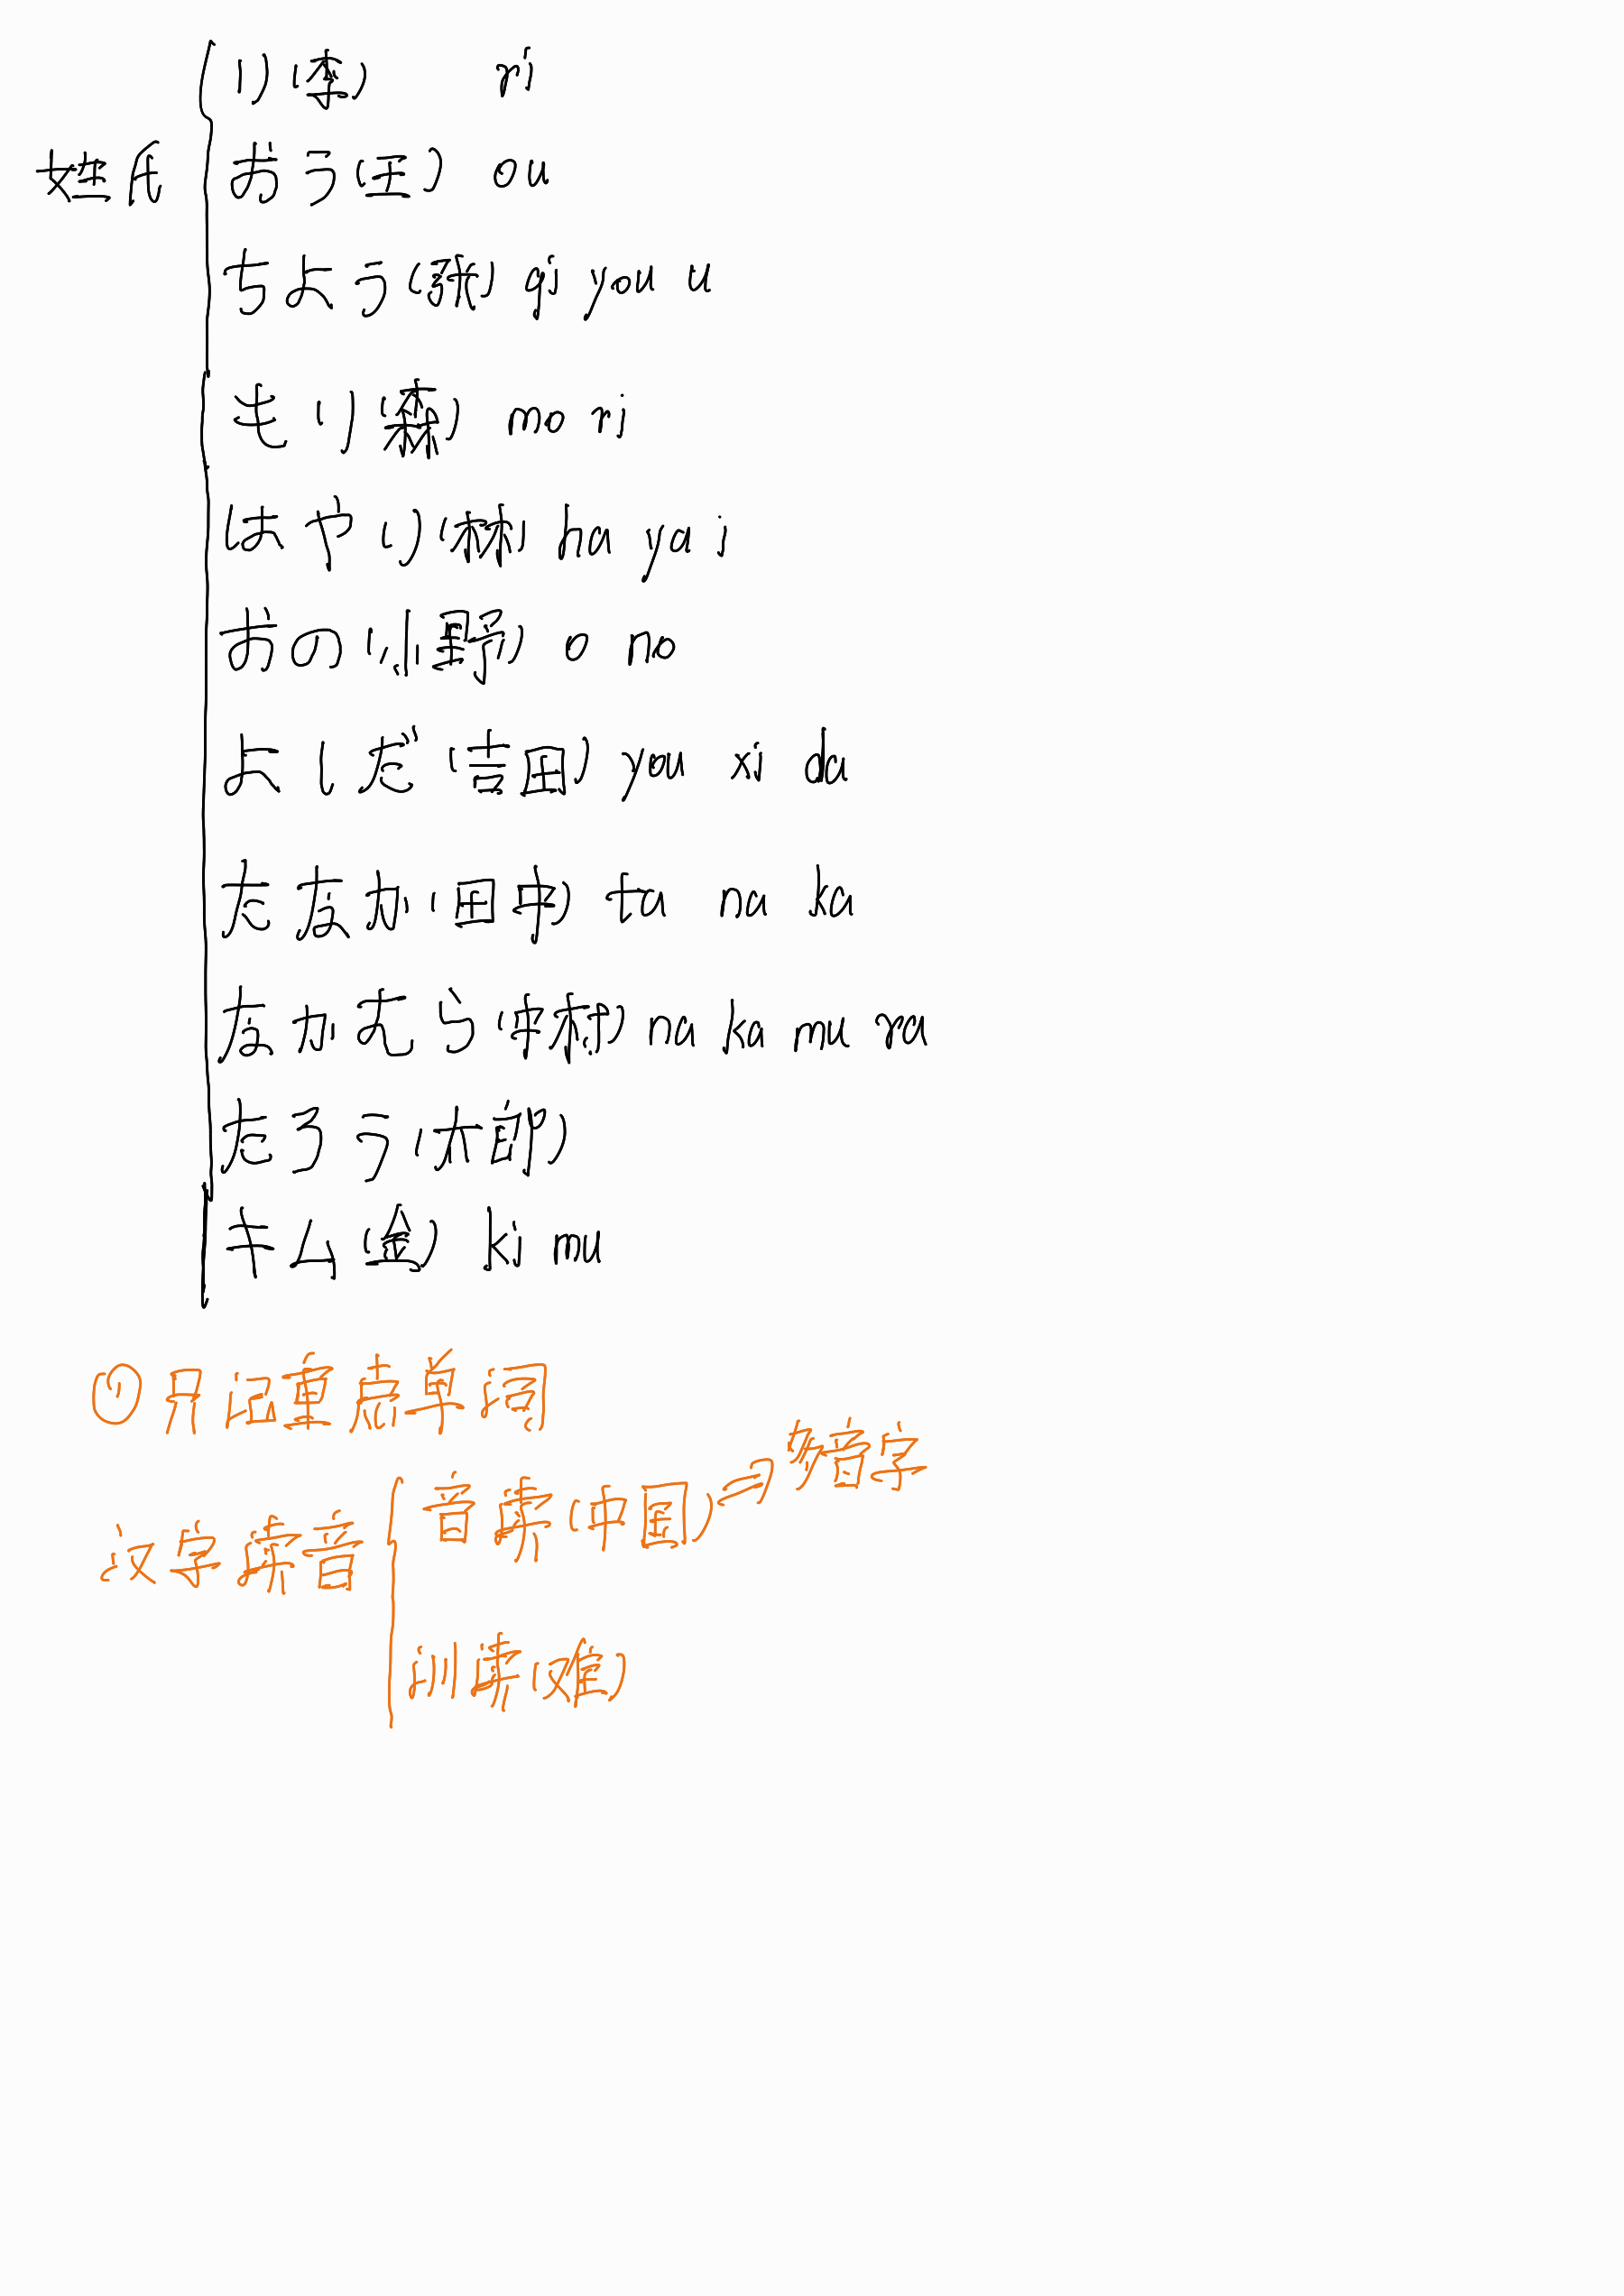 姓氏
り(李) ri
おう(王) ou
ちよう(张) qi you u
もり(森) mo ri
はやり(林) ha ya i
おの(小野) o no
よしだ(吉田) you xi da
たなか(田中) ta na ka
なかむら(中村) na ka mu ra
たろう(太郎)
キム(金) ki mu
①只记重点单词
汉字读音
音读(中国)⇒多音字
训读(难)